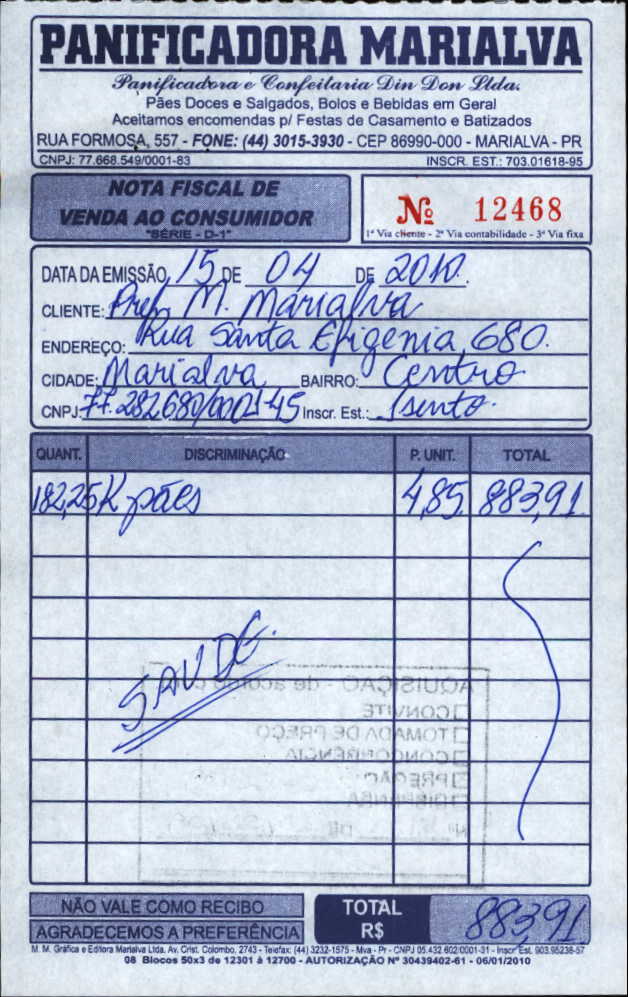 PANIFICADORA MARIALVA
Panificadora e Confeitaria Din Don Ltda.
Pães Doces e Salgados, Bolos e Bebidas em Geral
Aceitamos encomendas p/ Festas de Casamento e Batizados
RUA FORMOSA, 557 - FONE: (44) 3015-3930 - CEP 86990-000 - MARIALVA - PR
CNPJ: 77.668.549/0001-83 INSCR. EST.: 703.01618-95
NOTA FISCAL DE
VENDA AO CONSUMIDOR
"SÉRIE - D-1"
Nº 12468
1ª Via cliente - 2ª Via contabilidade - 3ª Via fixa
DATA DA EMISSÃO, 15 DE 04 DE 2010.
CLIENTE: Pref. M. Marialva
ENDEREÇO: Rua Santa Efigenia, 680.
CIDADE: Marialva BAIRRO: Centro
CNPJ: 77.282.680/0001-45 Inscr. Est.: Isento.
QUANT. DISCRIMINAÇÃO P. UNIT. TOTAL
182,25 K pães 4,85 883,91
SAUDE.
AQUISIÇÃO - de acordo c/
CONVITE
TOMADA DE PREÇO
CONCORRÊNCIA
PREGÃO
DISPENSA
Nº DE
NÃO VALE COMO RECIBO
AGRADECEMOS A PREFERÊNCIA
TOTAL
R$ 883,91
M. M. Gráfica e Editora Marialva Ltda. Av. Crist. Colombo, 2743 - Telefax: (44) 3232-1575 - Mva - Pr - CNPJ 05.432.602/0001-31 - Inscr. Est. 903.95238-57
08 Blocos 50x3 de 12301 à 12700 - AUTORIZAÇÃO Nº 30439402-61 - 06/01/2010